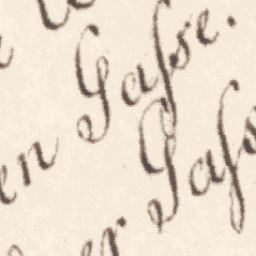 en Gasse.
er Gass